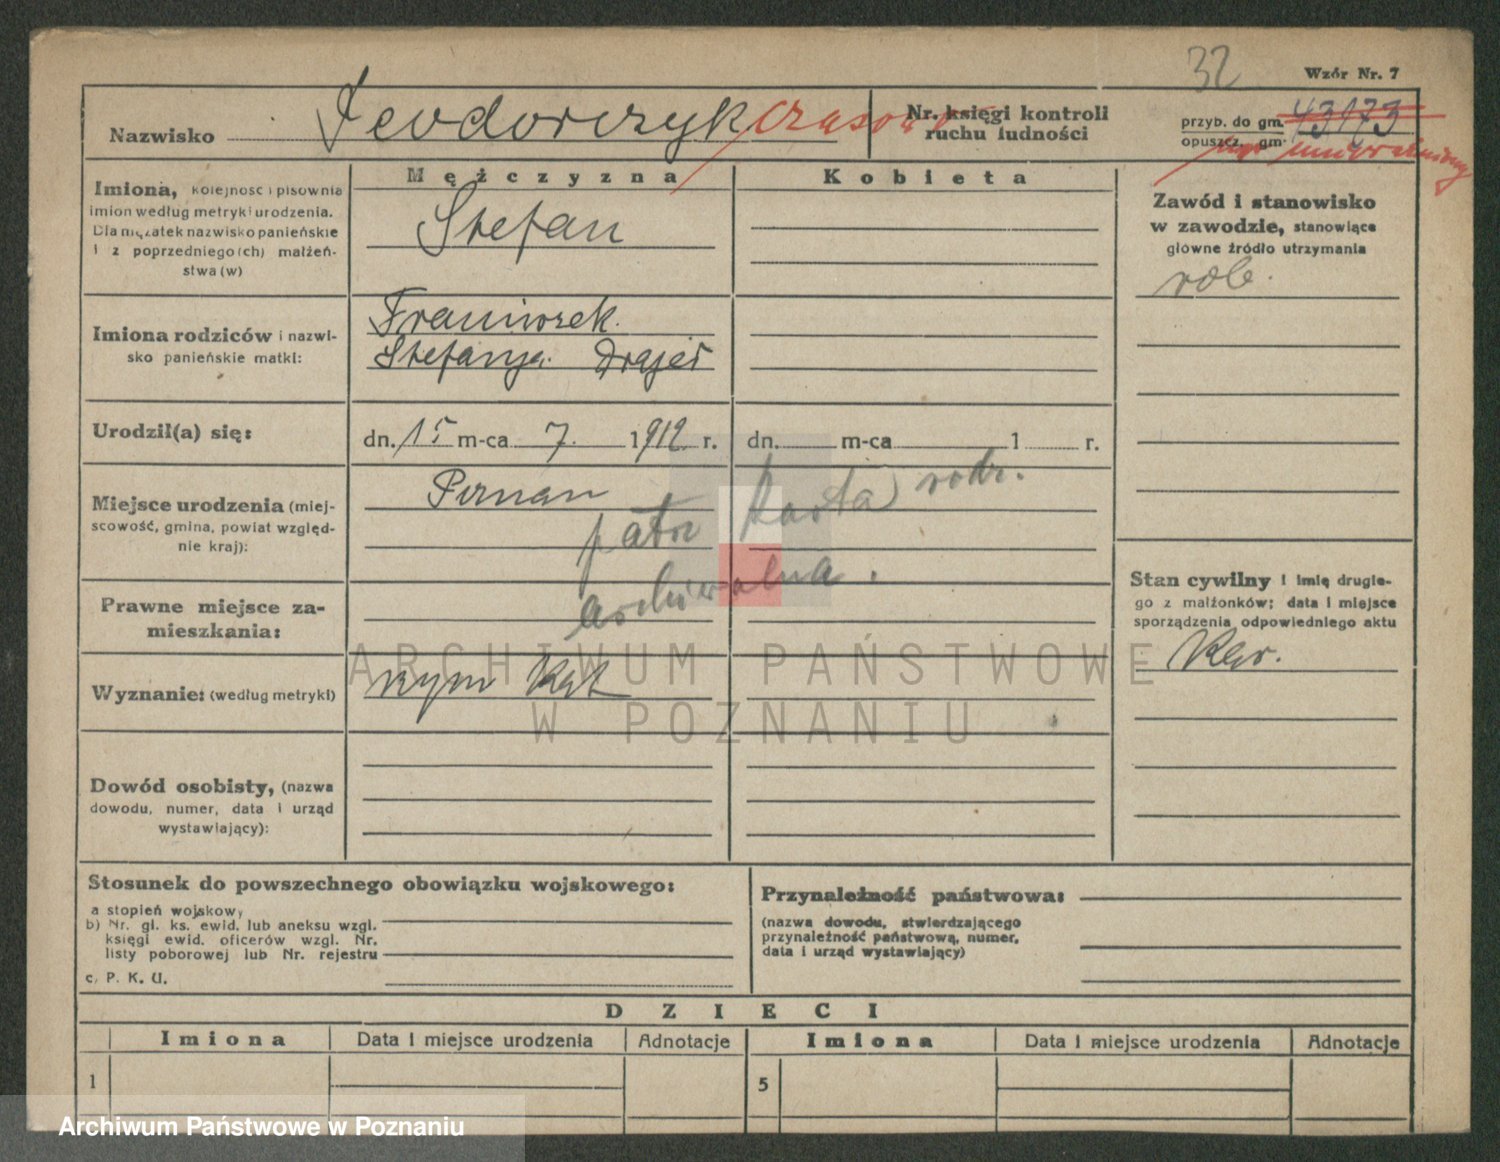 32
Wzór Nr. 7
Nazwisko Teodorczyk czasowo
Nr. księgi kontroli
ruchu ludności
przyb. do gm. 43173
opuszcz. gm.
Mężczyzna
Kobieta
Imiona, kolejność i pisownia
imion według metryki urodzenia.
Dla mężatek nazwisko panieńskie
i z poprzedniego(ch) małżeń-
stwa (w)
Stefan
Zawód i stanowisko
w zawodzie, stanowiące
główne źródło utrzymania
rob.
Imiona rodziców i nazwi-
sko panieńskie matki:
Franciszek
Stefanja
Urodził(a) się:
dn. 15 m-ca 7. 1912 r.
dn. m-ca 1 r.
Miejsce urodzenia (miej-
scowość, gmina, powiat względ-
nie kraj):
patrz karta rodz.
archiwalna.
Prawne miejsce za-
mieszkania:
Stan cywilny i imię drugie-
go z małżonków; data i miejsce
sporządzenia odpowiedniego aktu
Kaw.
Wyznanie: (według metryki)
rzym kat
ARCHIWUM PAŃSTWOWE
W POZNANIU
Dowód osobisty, (nazwa
dowodu, numer, data i urząd
wystawiający):
Stosunek do powszechnego obowiązku wojskowego:
a stopień wojskowy
b) Nr. gl. ks. ewid. lub aneksu wzgl.
księgi ewid. oficerów wzgl. Nr.
listy poborowej lub Nr. rejestru
c. P. K. U.
Przynależność państwowa:
(nazwa dowodu, stwierdzającego
przynależność państwową, numer,
data i urząd wystawiający)
DZIECI
Imiona Data i miejsce urodzenia Adnotacje Imiona Data i miejsce urodzenia Adnotacje
1 5
Archiwum Państwowe w Poznaniu